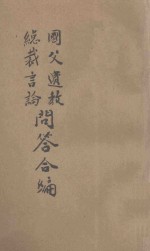 國父遺教
總裁言論
問答合編